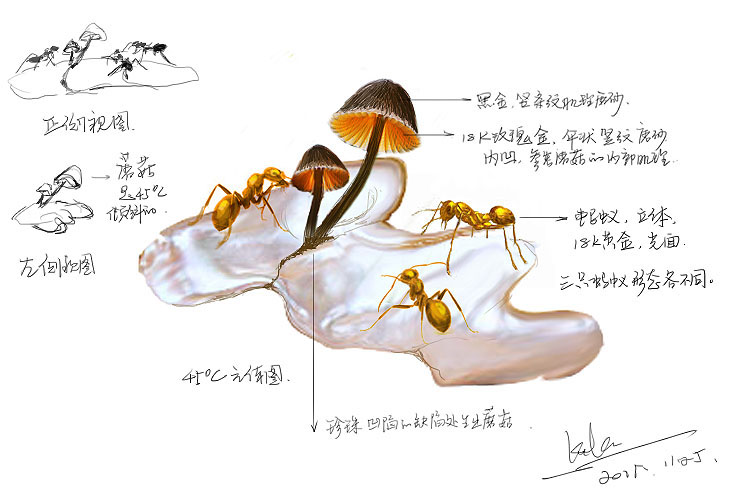 正侧视图.
蘑菇
是45°C
倾斜的.
左侧视图
黑金,竖条纹肌理磨砂.
18K玫瑰金,伞状竖纹磨砂
内凹,参考蘑菇的内部肌理.
蚂蚁,立体,
18K黄金,光面.
三只蚂蚁形态各不同。
45°C立体图.
珍珠凹陷的缺陷处生出蘑菇
2015.11.25.